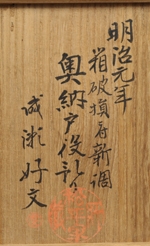 明治元年
箱破損ニ付新調
奥納戸役所
成瀬好文